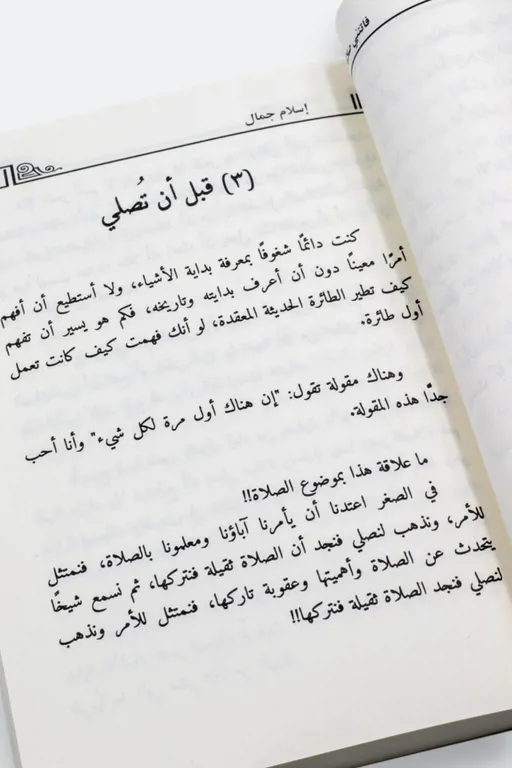 فاتتني صلاة
إسلام جمال
(٣) قبل أن تُصلي
كنت دائمًا شغوفًا بمعرفة بداية الأشياء، ولا أستطيع أن أفهم
أمرًا معينًا دون أن أعرف بدايته وتاريخه، فكم هو يسير أن تفهم
كيف تطير الطائرة الحديثة المعقدة، لو أنك فهمت كيف كانت تعمل
أول طائرة.
وهناك مقولة تقول: "إن هناك أول مرة لكل شيء" وأنا أحب
جدًا هذه المقولة.
ما علاقة هذا بموضوع الصلاة!!
في الصغر اعتدنا أن يأمرنا آباؤنا ومعلمونا بالصلاة، فنمتثل
للأمر، ونذهب لنصلي فنجد أن الصلاة ثقيلة فنتركها، ثم نسمع شيخًا
يتحدث عن الصلاة وأهميتها وعقوبة تاركها، فنمتثل للأمر ونذهب
لنصلي فنجد الصلاة ثقيلة فنتركها!!